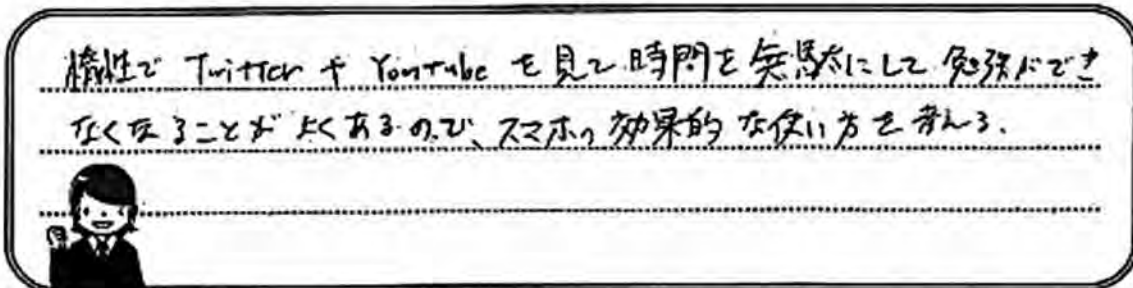 惰性で TwitterやYoutubeを見て時間を無駄にして勉強ができ
なくなることがよくあるので、スマホの効果的な使い方を考える.